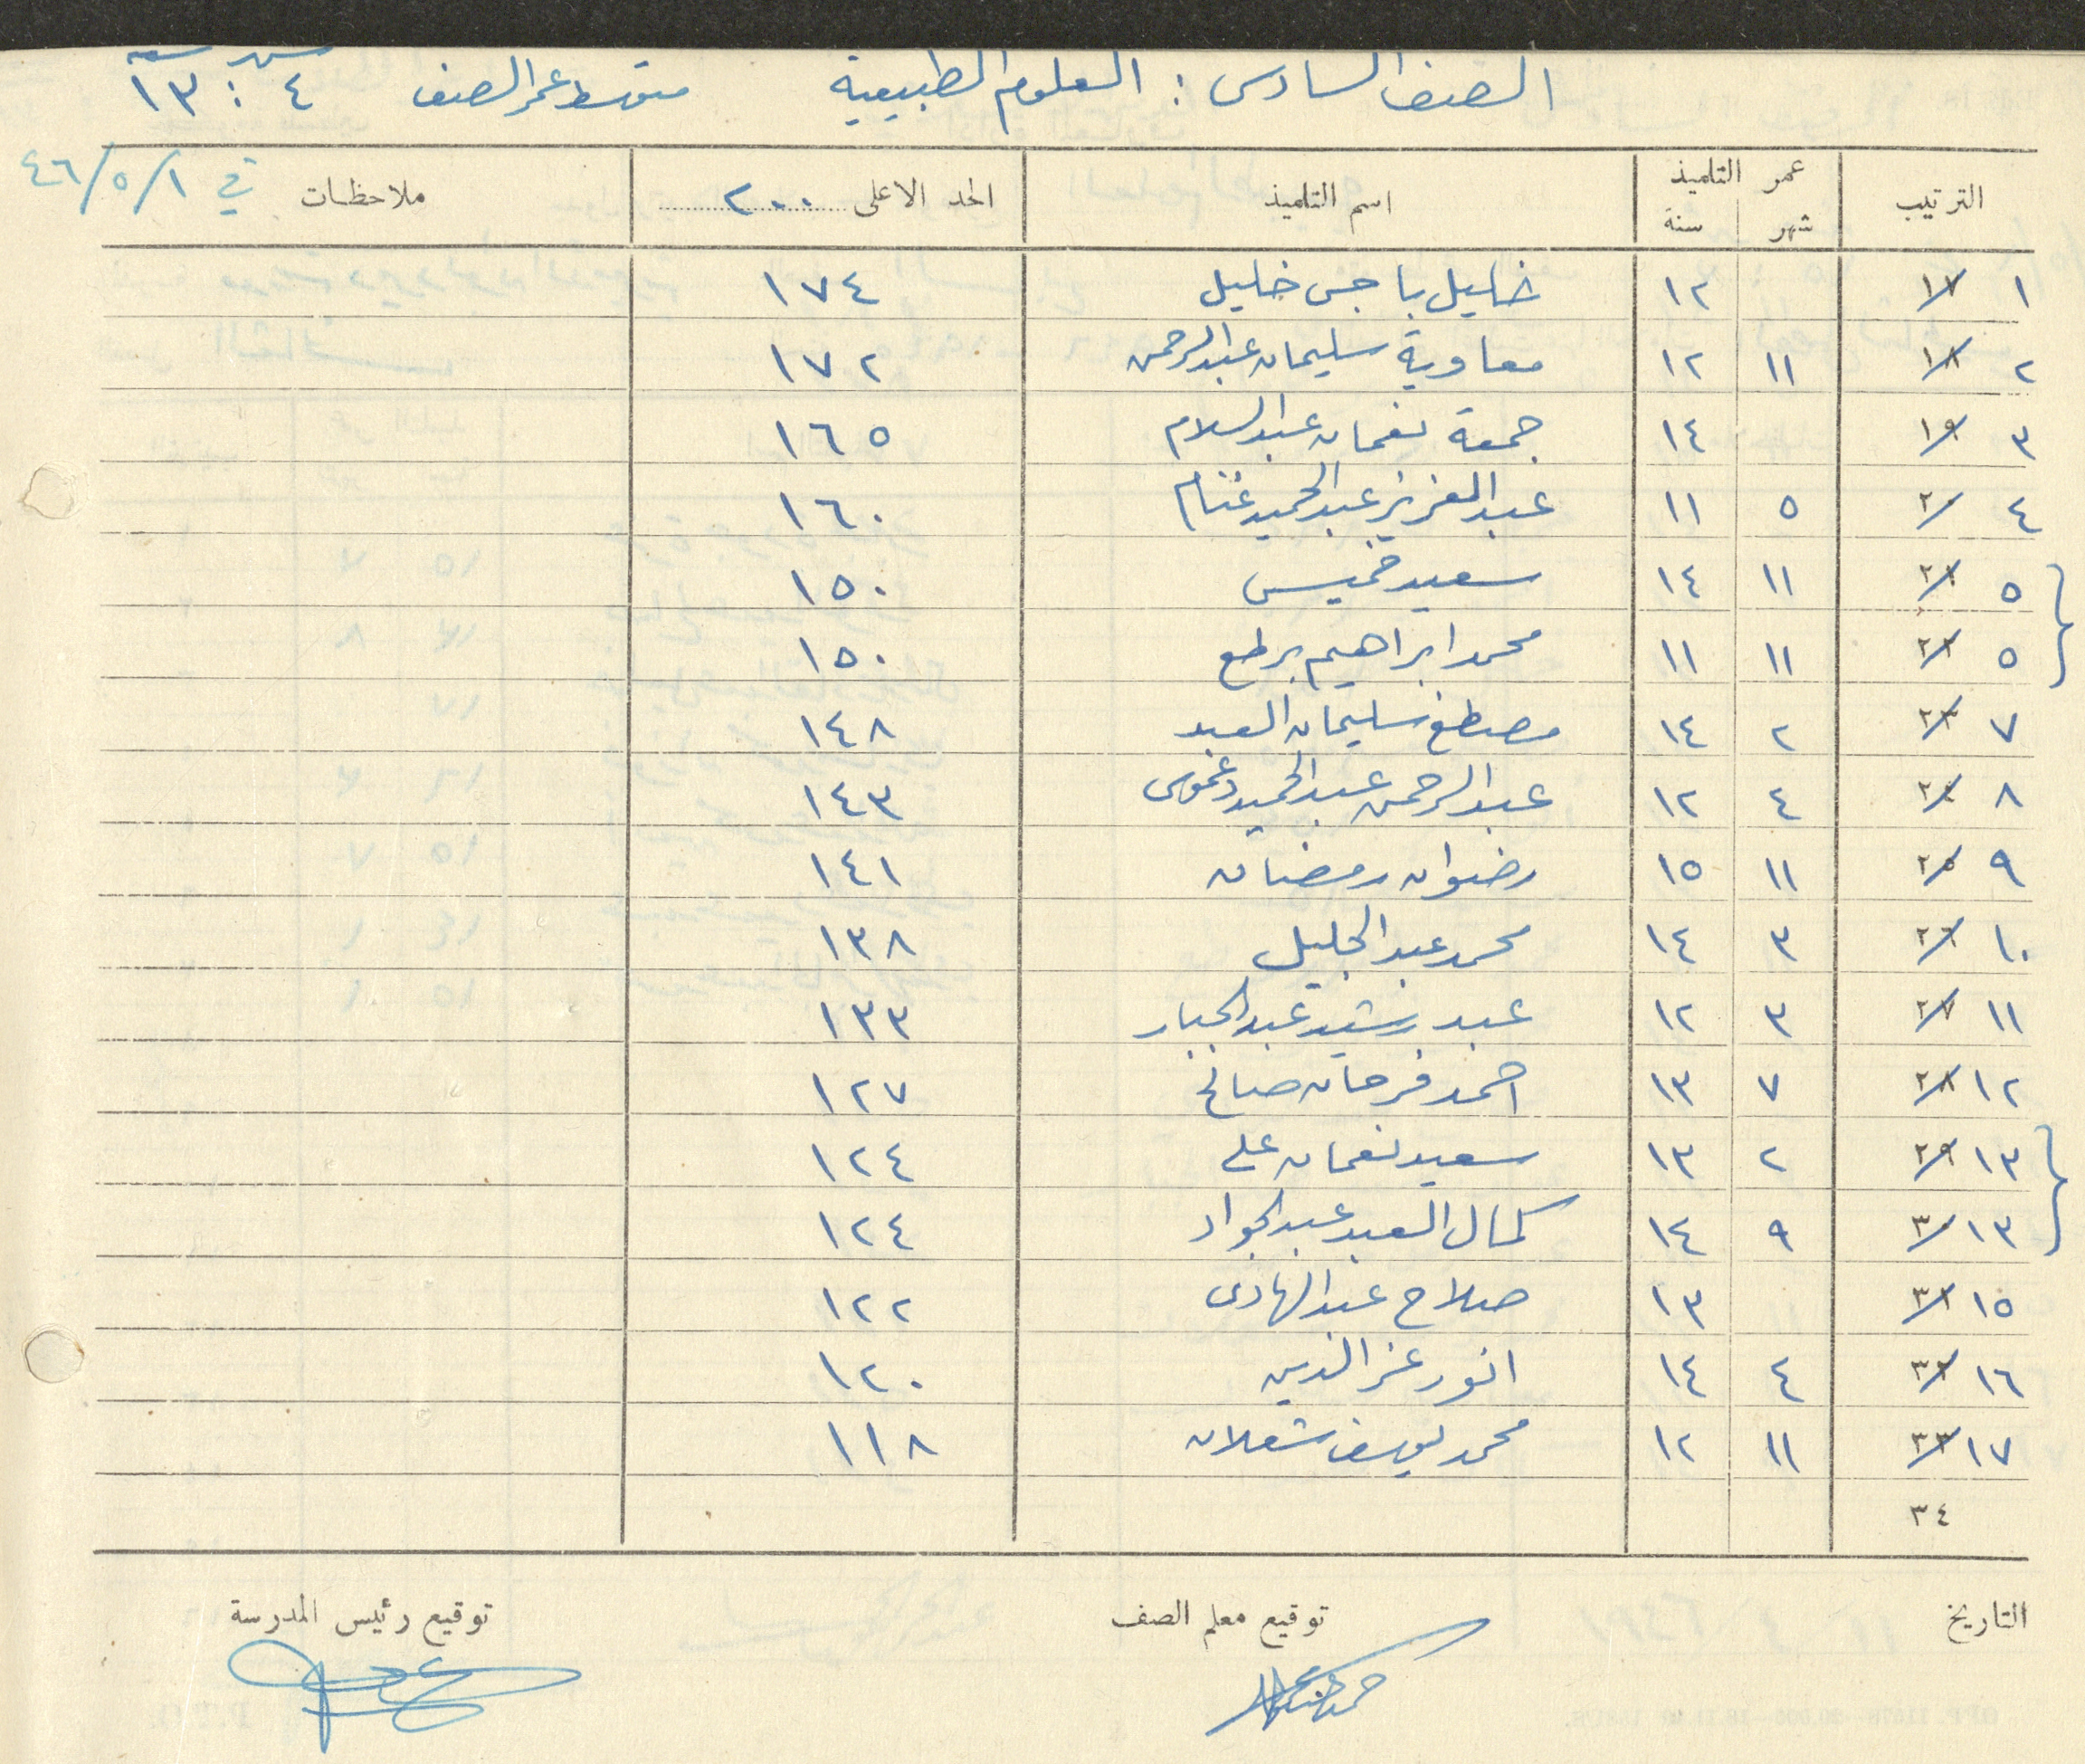 شهر سنة
الصف السادس : العلوم الطبيعية متوسط عمر الصف ٤ : ١٣
الترتيب عمر التلميذ اسم التلميذ الحد الاعلى ٢٠٠ ملاحظات في ٤٦/٥/١
شهر سنة
١ ١٧ ١٢ خليل باجس خليل ١٧٤
٢ ١٨ ١١ ١٢ معاوية سليمان عبدالرحمن ١٧٢
٣ ١٩ ١٤ جمعة نعمان عبدالسلام ١٦٥
٤ ٢٠ ٥ ١١ عبدالعزيز عبدالحميد غنام ١٦٠
٥ ٢١ ١١ ١٤ سعيد خميس ١٥٠
٥ ٢٢ ١١ ١١ محمد ابراهيم برطع ١٥٠
٧ ٢٣ ٢ ١٤ مصطفى سليمان العبد ١٤٨
٨ ٢٤ ٤ ١٢ عبدالرحمن عبدالحميد دغموس ١٤٣
٩ ٢٥ ١١ ١٥ رضوان رمضان ١٤١
١٠ ٢٦ ٣ ١٤ محمد عبدالجليل ١٣٨
١١ ٢٧ ٣ ١٢ عبد رشيد عبدالجبار ١٣٣
١٢ ٢٨ ٧ ١٣ احمد فرحان صالح ١٢٧
١٣ ٢٩ ٢ ١٣ سعيد نعمان علي ١٢٤
١٣ ٣٠ ٩ ١٤ كمال العبد عبدالجواد ١٢٤
١٥ ٣١ ١٣ صلاح عبدالهادى ١٢٢
١٦ ٣٢ ٤ ١٤ انور عزالدين ١٢٠
١٧ ٣٣ ١١ ١٢ محمد يوسف شعلان ١١٨
٣٤
التاريخ توقيع معلم الصف توقيع رئيس المدرسة